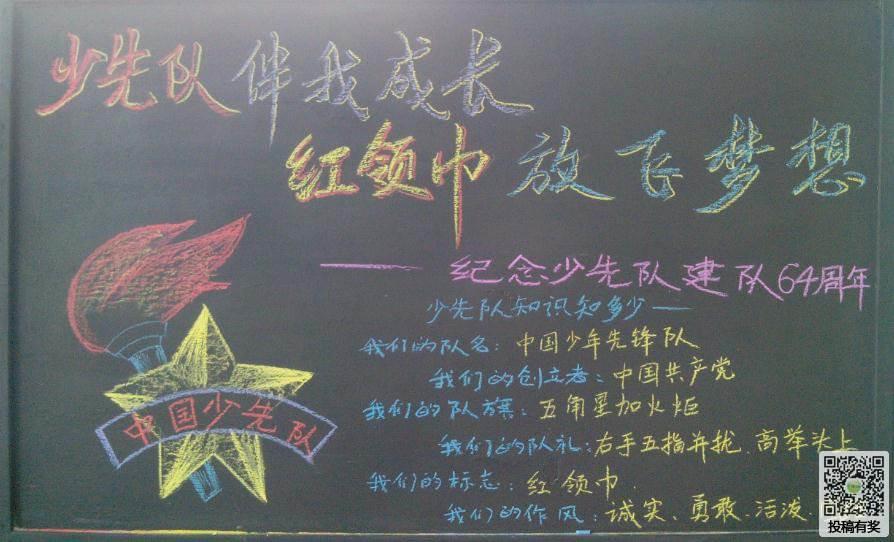 少先队伴我成长
红领巾放飞梦想
—— 纪念少先队建队64周年
少先队知识知多少——
我们的队名：中国少年先锋队
我们的创立者：中国共产党
我们的队旗：五角星加火炬
我们的队礼：右手五指并拢、高举头上
我们的标志：红领巾.
我们的作风：诚实、勇敢、活泼、
中国少先队
投稿有奖